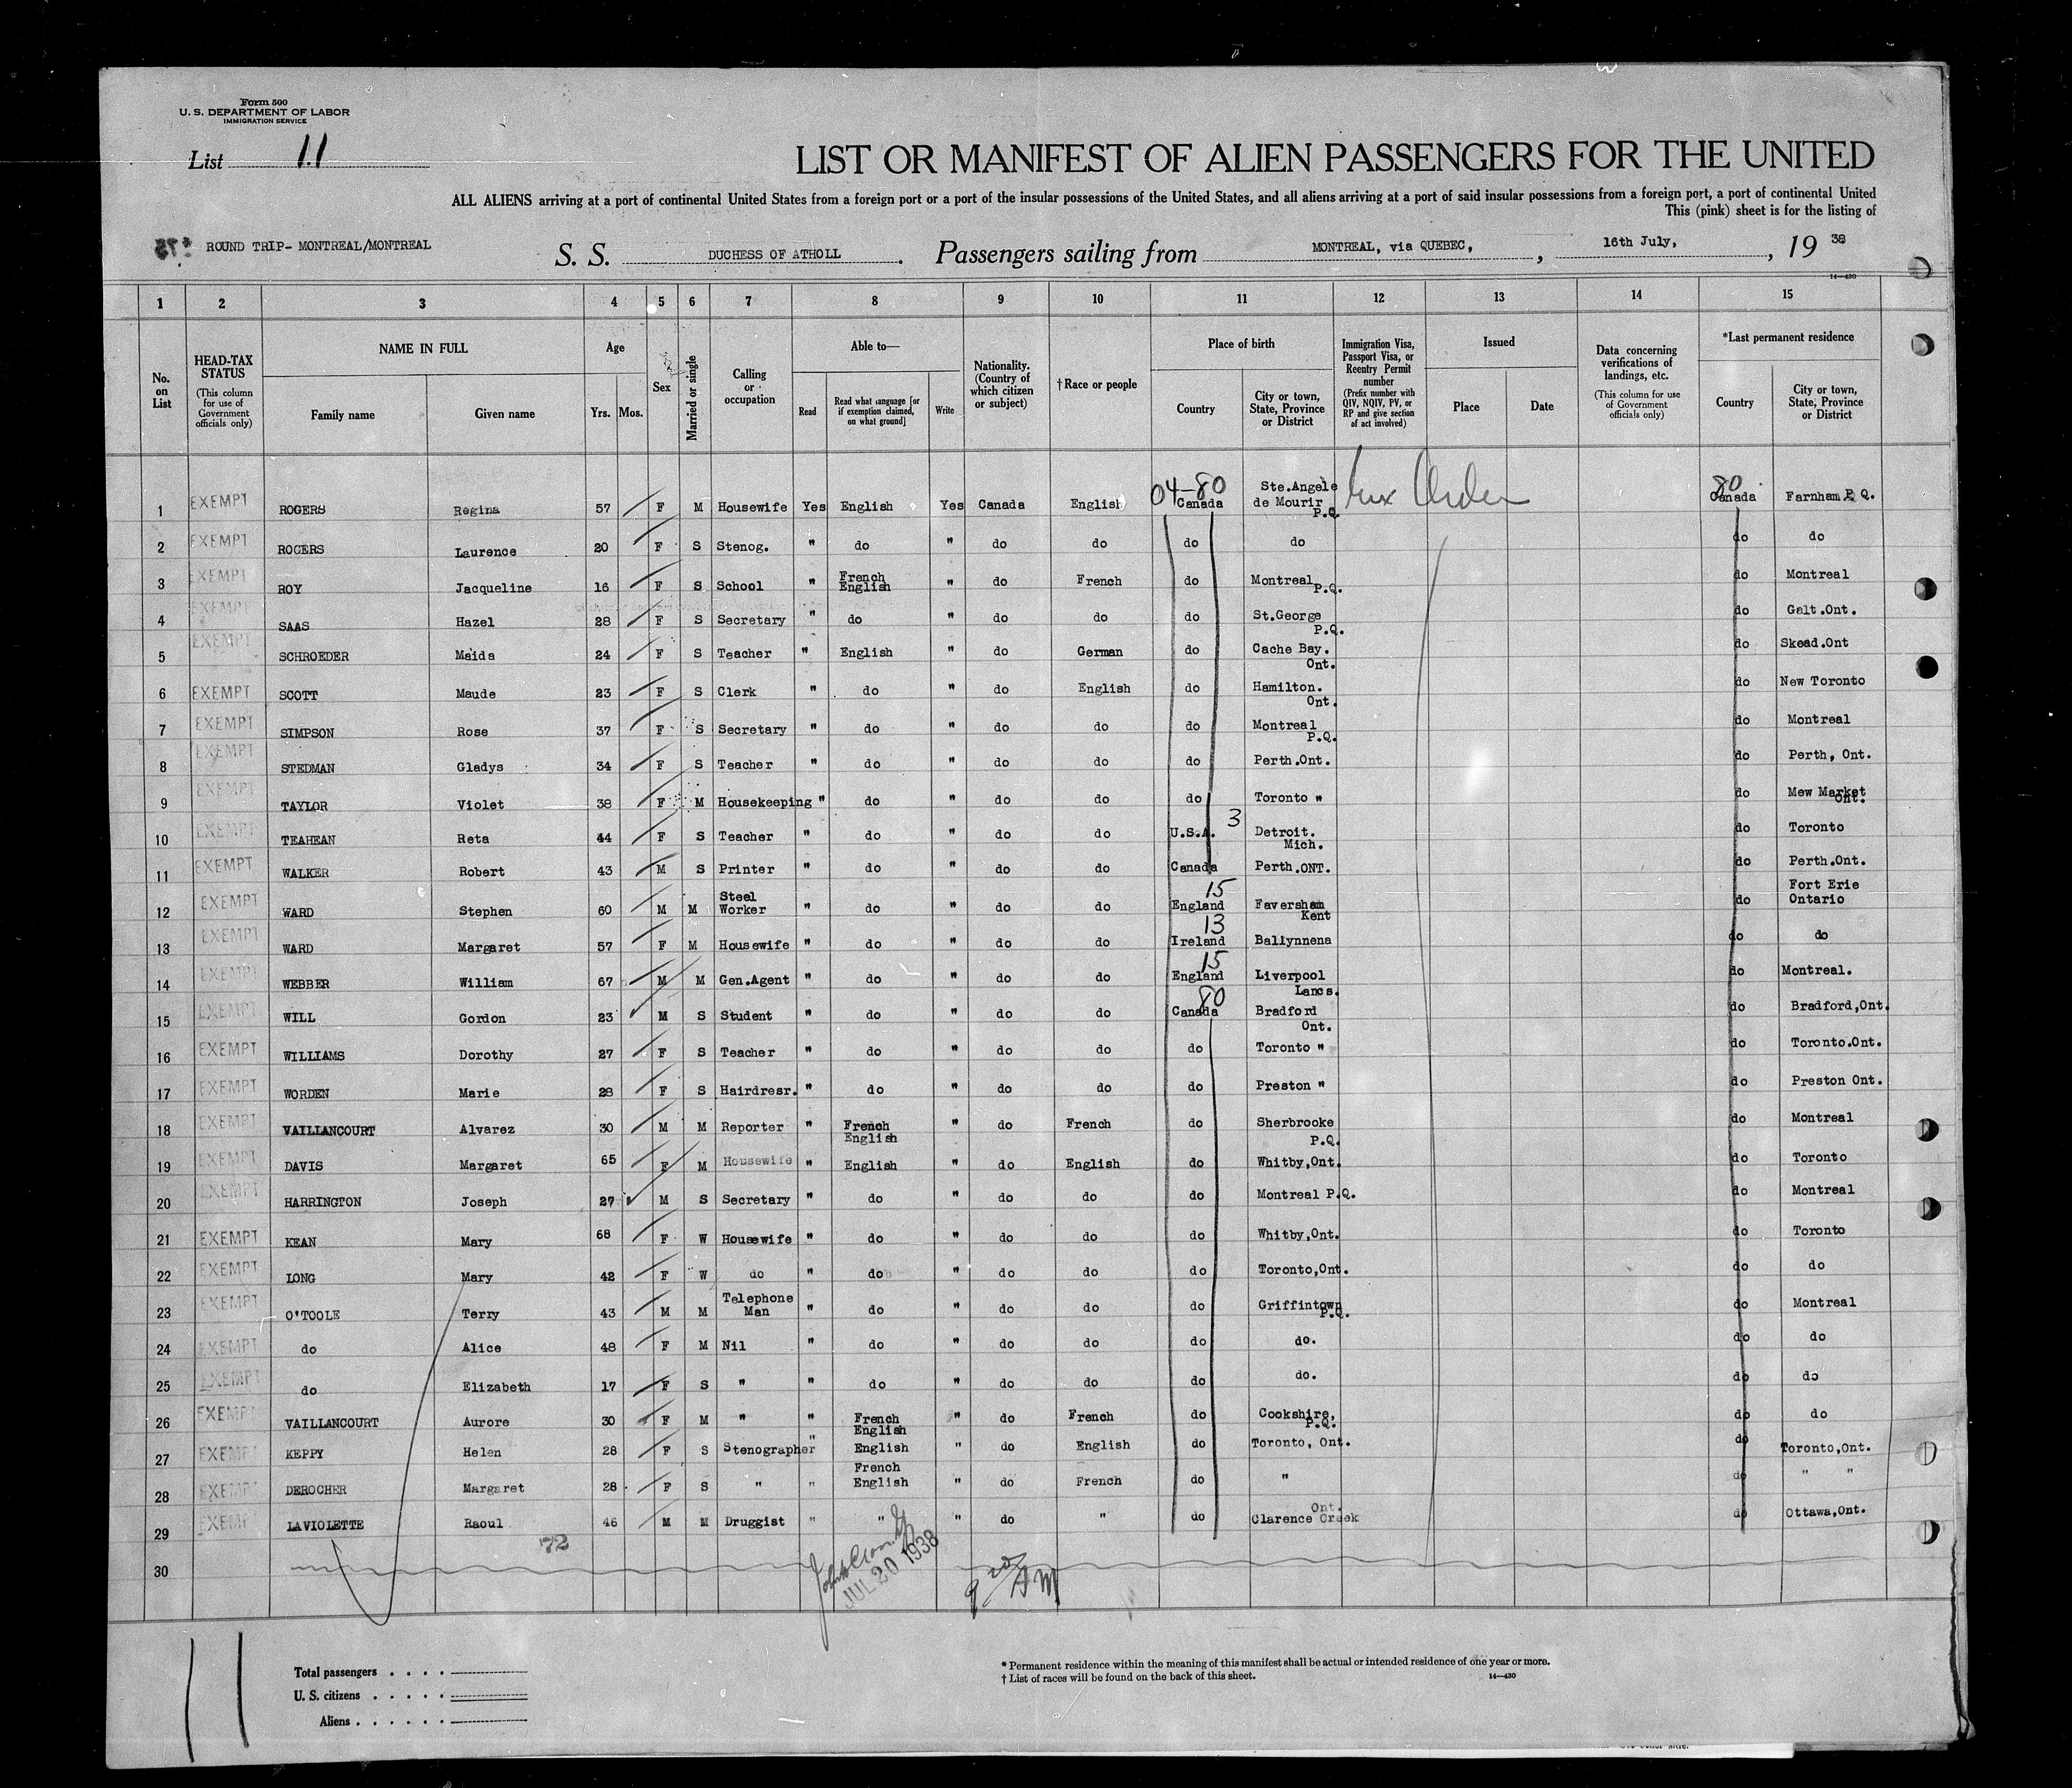 Form 500
U. S. DEPARTMENT OF LABOR
IMMIGRATION SERVICE
List 11
LIST OR MANIFEST OF ALIEN PASSENGERS FOR THE UNITED
ALL ALIENS arriving at a port of continental United States from a foreign port or a port of the insular possessions of the United States, and all aliens arriving at a port of said insular possessions from a foreign port, a port of continental United
This (pink) sheet is for the listing of
ROUND TRIP- MONTREAL/MONTREAL S. S. DUCHESS OF ATHOLL. Passengers sailing from MONTREAL, via QUEBEC, , 16th July, , 19 38
14—430
1 2 3 4 5 6 7 8 9 10 11 12 13 14 15
No. on List
HEAD-TAX STATUS
(This column for use of Government officials only)
NAME IN FULL
Family name Given name
Age
Yrs. Mos.
Sex
Married or single
Calling or occupation
Able to—
Read
Read what language [or if exemption claimed, on what ground]
Write
Nationality. (Country of which citizen or subject)
†Race or people
Place of birth
Country
City or town, State, Province or District
Immigration Visa, Passport Visa, or Reentry Permit number
(Prefix number with QIV, NQIV, PV, or RP and give section of act involved)
Issued
Place Date
Data concerning verifications of landings, etc.
(This column for use of Government officials only)
*Last permanent residence
Country
City or town, State, Province or District
04-80 80
1 EXEMPT ROGERS Regina 57 F M Housewife Yes English Yes Canada English Canada Ste.Angele de Mourir P.Q. Canada Farnham P.Q.
2 EXEMPT ROGERS Laurence 20 F S Stenog. " do " do do do do do do
3 EXEMPT ROY Jacqueline 16 F S School " French English " do French do Montreal P.Q. do Montreal
4 EXEMPT SAAS Hazel 28 F S Secretary " do " do do do St.George P.Q. do Galt.Ont.
5 EXEMPT SCHROEDER Maida 24 F S Teacher " English " do German do Cache Bay. Ont. do Skead.Ont
6 EXEMPT SCOTT Maude 23 F S Clerk " do " do English do Hamilton. Ont. do New Toronto
7 EXEMPT SIMPSON Rose 37 F S Secretary " do " do do do Montreal P.Q. do Montreal
8 EXEMPT STEDMAN Gladys 34 F S Teacher " do " do do do Perth.Ont. do Perth, Ont.
9 EXEMPT TAYLOR Violet 38 F M Housekeeping " do " do do do Toronto " do Mew Market Ont.
10 EXEMPT TEAHEAN Reta 44 F S Teacher " do " do do U.S.A. 3 Detroit. Mich. do Toronto
11 EXEMPT WALKER Robert 43 M S Printer " do " do do Canada Perth.ONT. do Perth.Ont.
12 EXEMPT WARD Stephen 60 M M Steel Worker " do " do do 15 England Faversham Kent do Fort Erie Ontario
13 EXEMPT WARD Margaret 57 F M Housewife " do " do do 13 Ireland Ballynnena do do
14 EXEMPT WEBBER William 67 M M Gen.Agent " do " do do 15 England Liverpool Lancs. do Montreal.
15 EXEMPT WILL Gordon 23 M S Student " do " do do 80 Canada Bradford Ont. do Bradford,Ont.
16 EXEMPT WILLIAMS Dorothy 27 F S Teacher " do " do do do Toronto " do Toronto.Ont.
17 EXEMPT WORDEN Marie 28 F S Hairdresr. " do " do do do Preston " do Preston Ont.
18 EXEMPT VAILLANCOURT Alvarez 30 M M Reporter " French English " do French do Sherbrooke P.Q. do Montreal
19 EXEMPT DAVIS Margaret 65 F M Housewife " English " do English do Whitby,Ont. do Toronto
20 EXEMPT HARRINGTON Joseph 27 M S Secretary " do " do do do Montreal P.Q. do Montreal
21 EXEMPT KEAN Mary 68 F W Housewife " do " do do do Whitby,Ont. do Toronto
22 EXEMPT LONG Mary 42 F W do " do " do do do Toronto,Ont. do do
23 EXEMPT O'TOOLE Terry 43 M M Telephone Man " do " do do do Griffintown P.Q. do Montreal
24 EXEMPT do Alice 48 F M Nil " do " do do do do. do do
25 EXEMPT do Elizabeth 17 F S " " do " do do do do. do do
26 EXEMPT VAILLANCOURT Aurore 30 F M " " French English " do French do Cookshire, P.Q. do do
27 EXEMPT KEPPY Helen 28 F S Stenographer " English " do English do Toronto, Ont. do Toronto,Ont.
28 EXEMPT DEROCHER Margaret 28 F S " " French English " do French do " do " "
29 EXEMPT LAVIOLETTE Raoul 46 M M Druggist " " " do " do Ont. Clarence Creek do Ottawa,Ont.
72
30
JUL 20 1938
9 20 AM
Total passengers
U. S. citizens
Aliens
* Permanent residence within the meaning of this manifest shall be actual or intended residence of one year or more.
† List of races will be found on the back of this sheet.
14—430